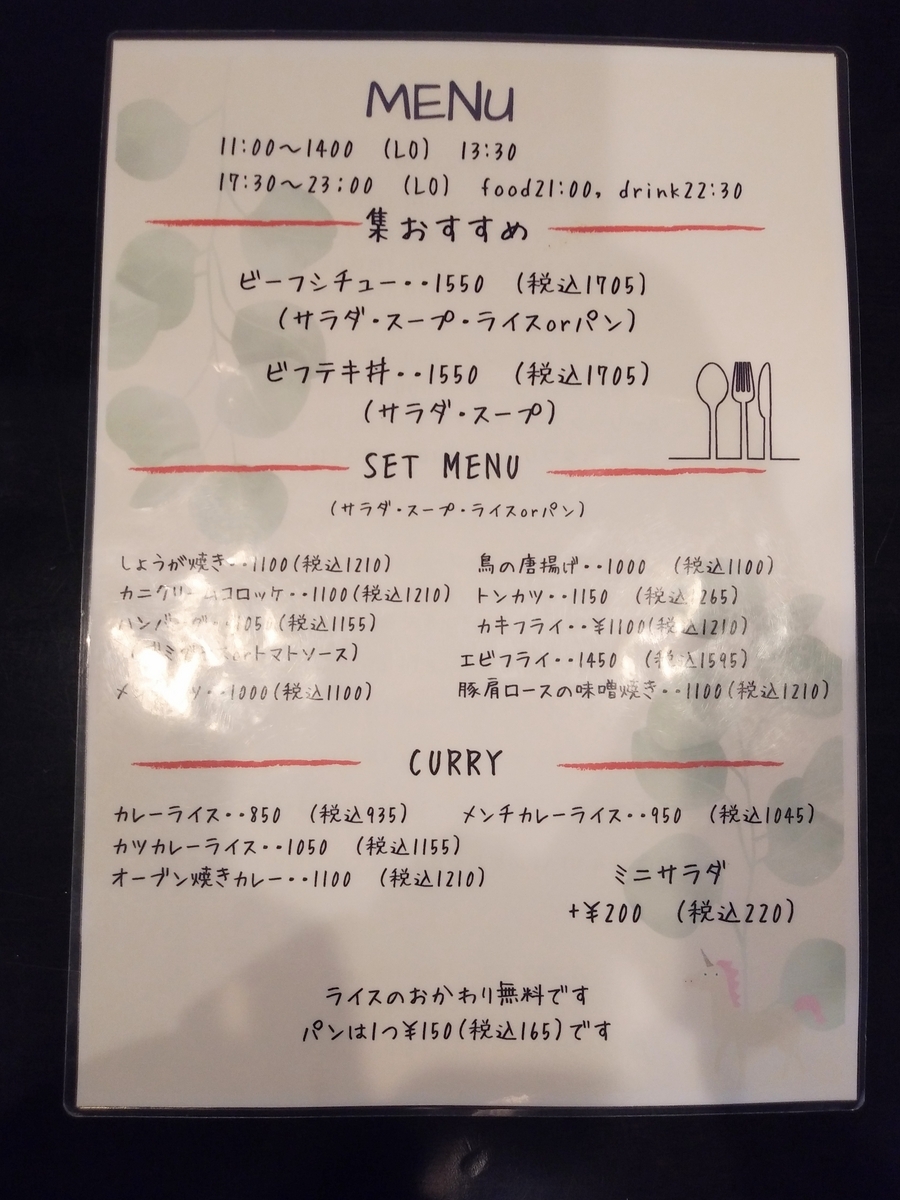 MENU
11:00～1400 (LO) 13:30
17:30～23:00 (LO) food21:00, drink22:30
集おすすめ
ビーフシチュー・・1550 (税込1705)
(サラダ・スープ・ライスorパン)
ビフテキ丼・・1550 (税込1705)
(サラダ・スープ)
SET MENU
(サラダ・スープ・ライスorパン)
しょうが焼き・・1100(税込1210)
カニクリームコロッケ・・1100(税込1210)
ハンバーグ・・1050(税込1155)
トマトソース)
・・1000(税込1100)
鳥の唐揚げ・・1000 (税込1100)
トンカツ・・1150 (税込1265)
カキフライ・・¥1100(税込1210)
エビフライ・・1450 (税込1595)
豚肩ロースの味噌焼き・・1100(税込1210)
CURRY
カレーライス・・850 (税込935)
メンチカレーライス・・950 (税込1045)
カツカレーライス・・1050 (税込1155)
オーブン焼きカレー・・1100 (税込1210)
ミニサラダ
+¥200 (税込220)
ライスのおかわり無料です
パンは1つ¥150(税込165)です